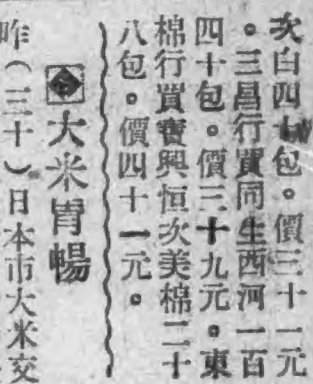 次白四十包。價三十一元
。三昌行買同生西河一百
四十包。價三十九元。東
棉行買寶興恒次美棉二十
八包。價四十一元。
大米胃暢
昨(三十)日本市大米交